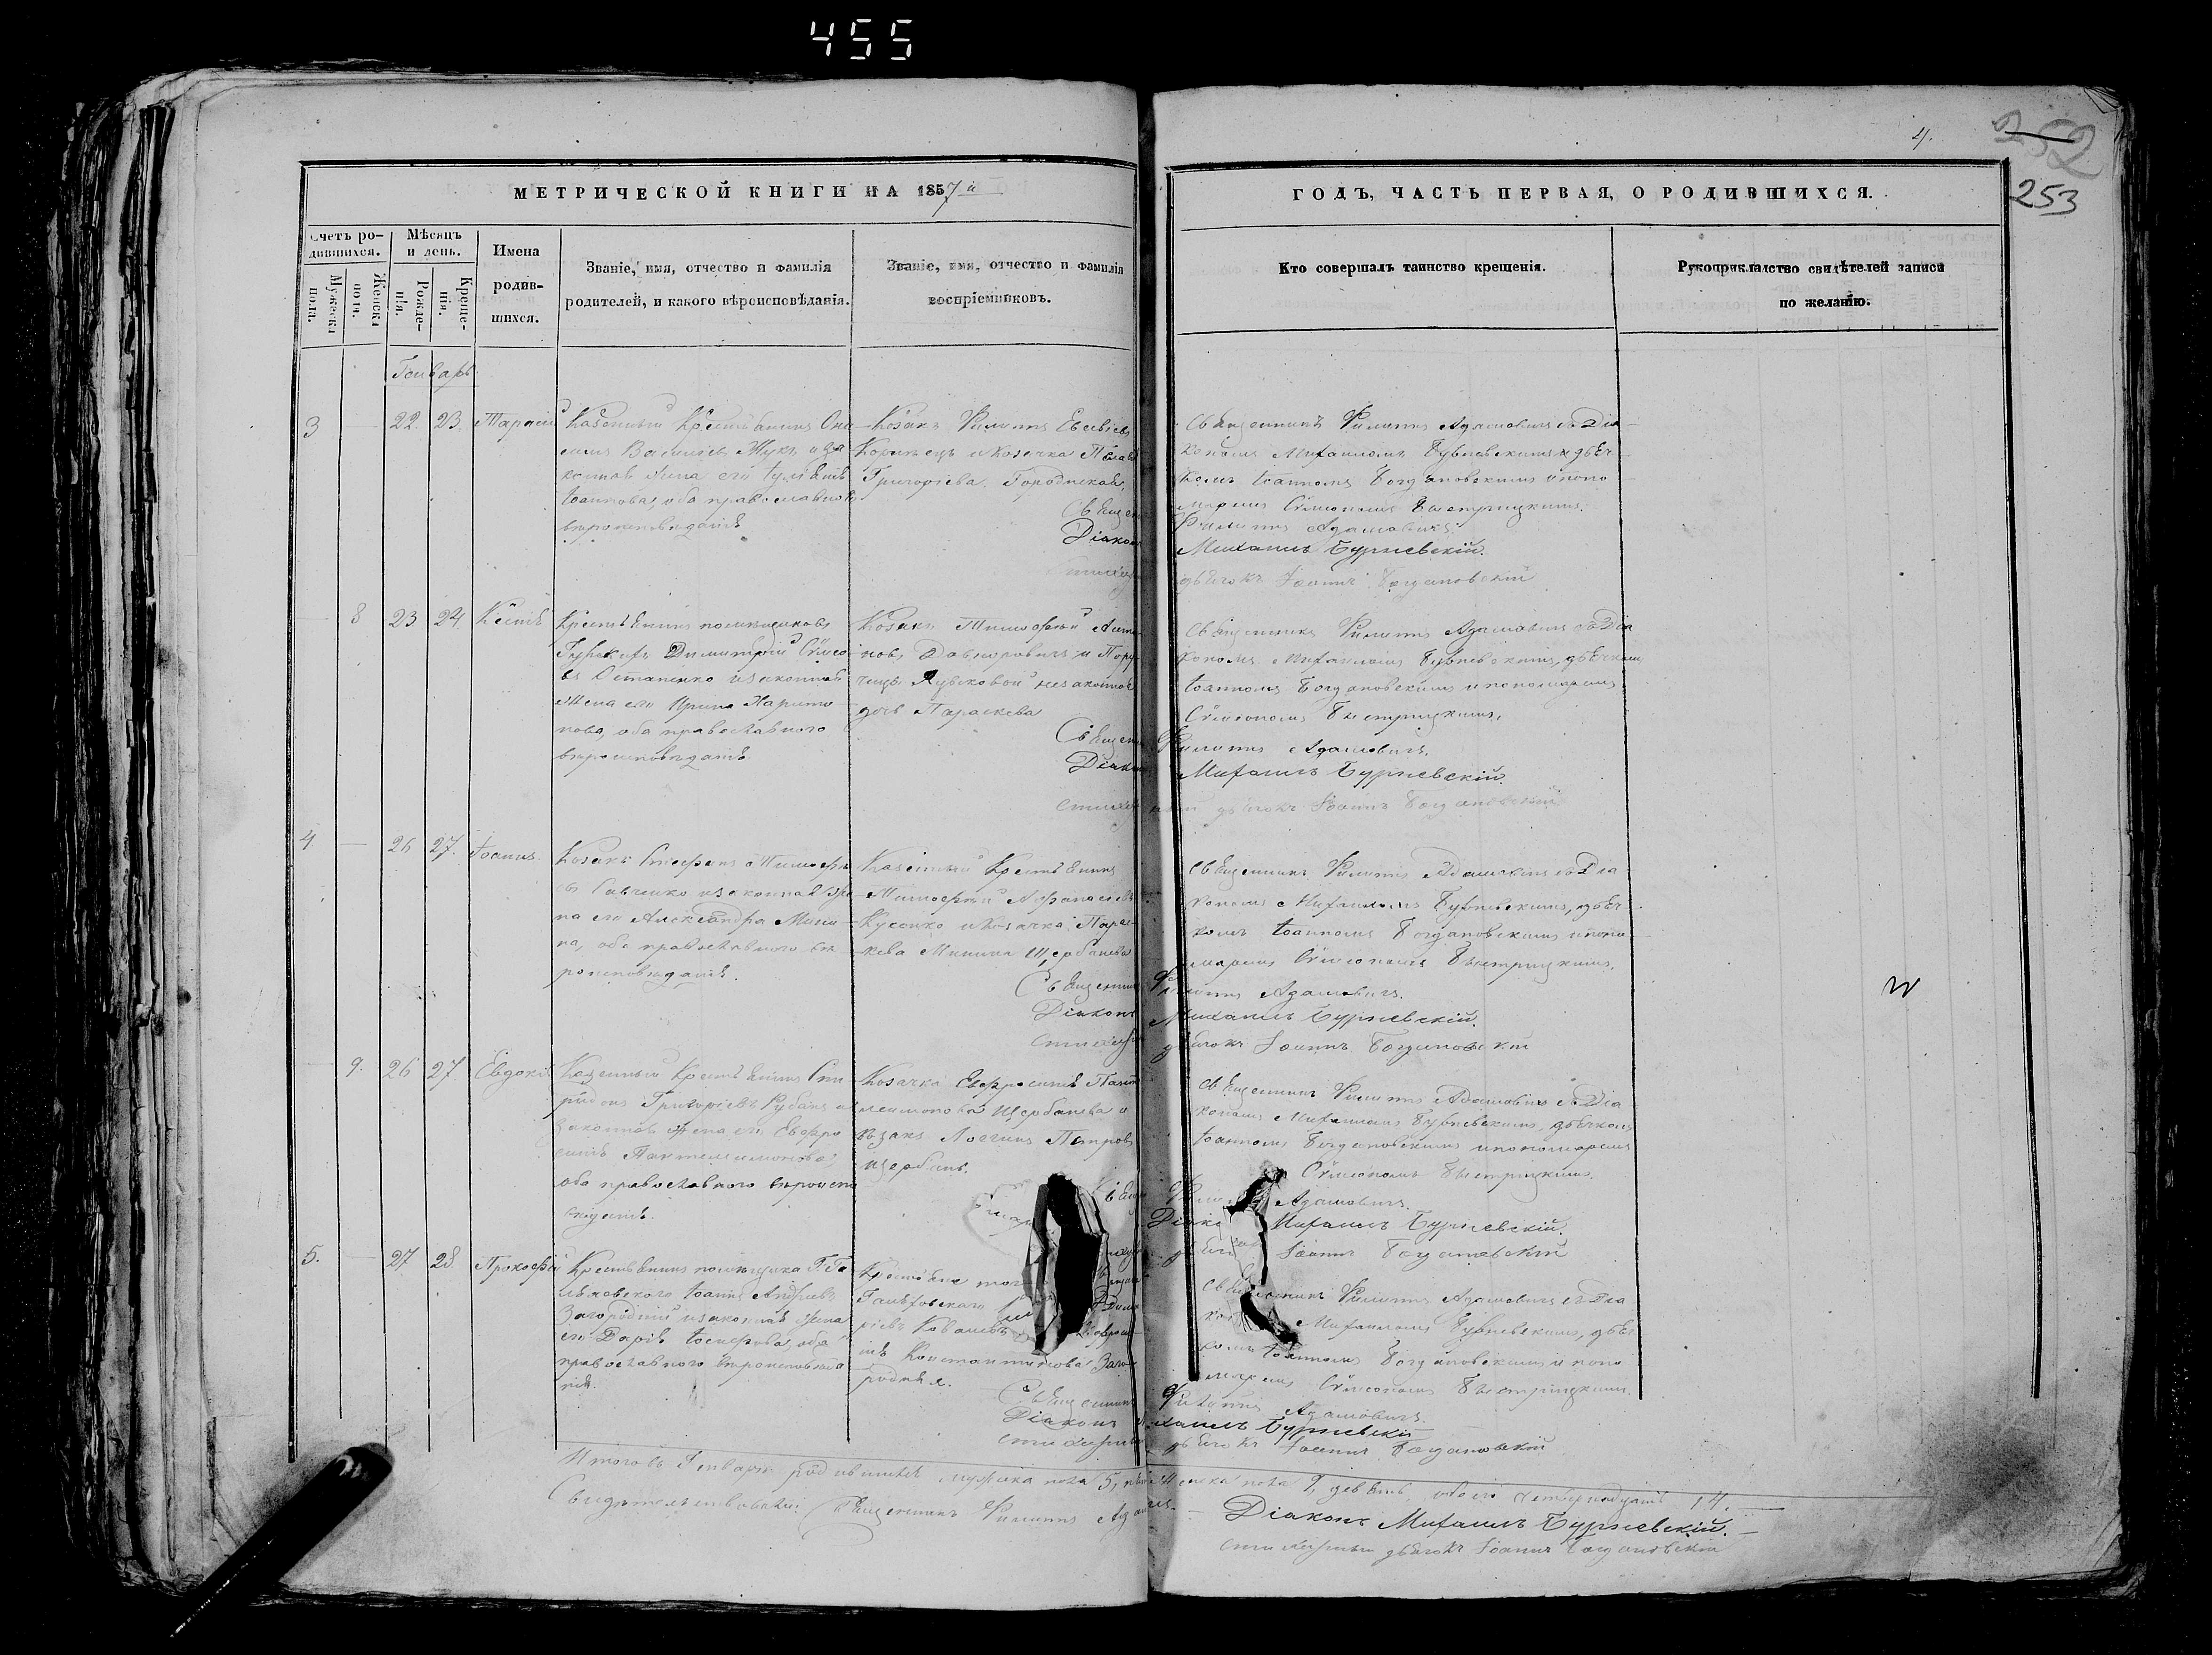 455
4.
252
253
МЕТРИЧЕСКОЙ КНИГИ НА 1857 й
ГОДЪ, ЧАСТЬ ПЕРВАЯ, О РОДИВШИХСЯ.
Счетъ ро-
дившихся.
Мужеска
пола.
Женска
пола.
Мѣсяцъ
и день.
Рожде-
нія.
Креще-
нія.
Имена
родив-
шихся.
Званіе, имя, отчество и фамилія
родителей, и какого вѣроисповѣданія.
Званіе, имя, отчество и фамилія
воспріемниковъ.
Кто совершалъ таинство крещенія.
Рукоприкладство свидѣтелей записи
по желанію.
Генварь
3 — 22. 23. Тарасій
Казенный Крестьянинъ
Васильевъ Жукъ и за
конная жена его
Іоаннова, оба православнаго
вѣроисповѣданія
Козакъ Филиппъ
и Козачка
Григоріева
Священникъ Филиппъ Адамовичъ съ Діа
кономъ Михаиломъ Бурневскимъ и дьяч
комъ Іоанномъ Богдановскимъ и поно
маремъ Сѵмеономъ Быстрицкимъ.
Филиппъ Адамовичъ.
Діаконъ Михаилъ Бурневскій.
дьячокъ Іоаннъ Богдановскій
— 8 23 24 Ксенія
Крестьянинъ помѣщиковъ
Димитрій Сѵмео
въ Остапенко и законная
жена его Ирина Харито
нова, оба православного
вѣроисповѣданія
Козакъ Тимофей
и Пору
чицы незаконная
дочь Параскева
Священникъ Филиппъ Адамовичъ съ Діа
кономъ Михаиломъ Бурневскимъ, дьячкомъ
Іоанномъ Богдановскимъ и пономаремъ
Сѵмеономъ Быстрицкимъ.
Филиппъ Адамовичъ.
Діаконъ Михаилъ Бурневскій.
дьячокъ Іоаннъ Богдановскій
4 — 26 27. Іоаннъ
Козакъ Стефанъ Тимофѣе
въ Савченко и законная же
на его Александра Мини
на, оба православного вѣ
роисповѣданія.
Казенный Крестьянинъ
Тимофей Афанасіевъ
и Козачка Парас
кева Минина Щербанева
Священникъ Филиппъ Адамовичъ съ Діа
кономъ Михаиломъ Бурневскимъ, дьяч
комъ Іоанномъ Богдановскимъ и поно
маремъ Сѵмеономъ Быстрицкимъ.
Священникъ Филиппъ Адамовичъ.
Діаконъ Михаилъ Бурневскій.
дьячокъ Іоаннъ Богдановскій
— 9. 26 27 Евдокія
Казенный Крестьянинъ Спи
ридонъ Григоріевъ Рубанъ и
законная жена его Евфро
синія Пантелеимонова,
оба православного вѣроиспо
вѣданія.
Козачка Евфросинія Панте
леимонова Щербанева и
Козакъ Логгинъ Петровъ
Щербань.
Священникъ Филиппъ Адамовичъ съ Діа
кономъ Михаиломъ Бурневскимъ, дьячкомъ
Іоанномъ Богдановскимъ и пономаремъ
Сѵмеономъ Быстрицкимъ.
Адамовичъ.
Михаилъ Бурневскій.
Іоаннъ Богдановскій
5. — 27 28. Прокофій
Крестьянинъ помѣщика
Іоаннъ Андреевъ
Загородній и законная жена
его Дарія Іосифова, оба
православного вѣроисповѣда
нія.
Константинова Заго
родняя.
Священникъ Филиппъ Адамовичъ съ Діа
Михаиломъ Бурневскимъ, дьяч
комъ Іоанномъ Богдановскимъ и поно
маремъ Сѵмеономъ Быстрицкимъ.
Священникъ Филиппъ Адамовичъ.
Діаконъ Михаилъ Бурневскій
дьячокъ Іоаннъ Богдановскій
Итого въ Генварѣ родившихся мужска пола 5, женска пола 9, девять, обоего четырнадцать 14.
Свидѣтельствовали: Священникъ Филиппъ Адамовичъ.
Діаконъ Михаилъ Бурневскій.
Стихарный дьячокъ Іоаннъ Богдановскій